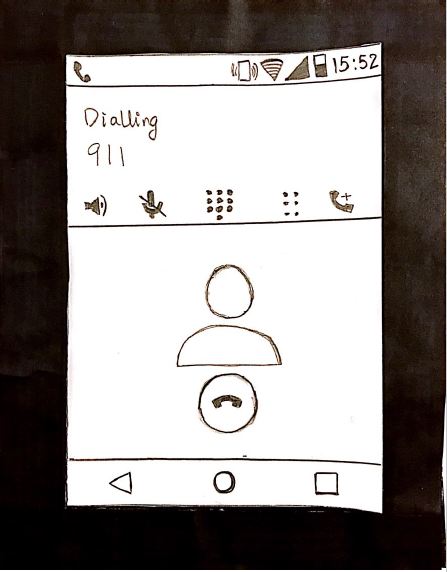 15:52
Dialling
911